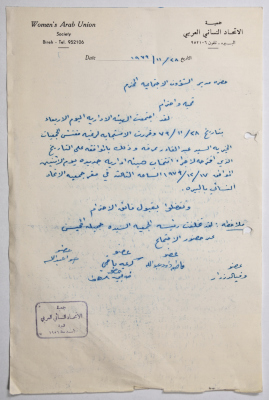 Women's Arab Union
Society
Bireh - Tel. 952126
جمعية
الاتحاد النسائي العربي
البيره - تلفون ٩٥٢١٢٦
Date ١٩٧٩/١١/٢٨ التاريخ
حضرة مدير الشؤون الاجتماعية المحترم
تحية واحترام
لقد اجتمعت الهيئة الادارية اليوم الاربعاء
بتاريخ ٧٩/١١/٢٨ وقررت الاستجابة مفتش الجمعيات
الخيرية السيد عبد القادر وذلك بالموافقة على التاريخ
الذي لاجراء انتخاب هيئة ادارية جديدة يوم الاثنين
الموافق ١٩٧٩/١٢/١٧ الساعة الثالثة في مقر جمعية الاتحاد
النسائي بالبيرة.
وتفضلوا بقبول فائق الاحترام
ملاحظة: لقد تخلفت رئيسة الجمعية السيدة جميلة
عن حضور الاجتماع
عضو
عضو
عضو
عضو
جمعية
الاتحاد النسائي العربي
البيرة